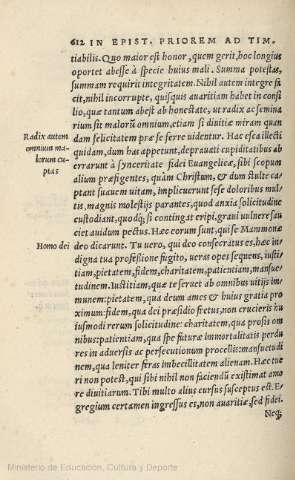 612 IN EPIST. PRIOREM AD TIM.
tiabilis. Quo maior est honor, quem gerit, hoc longius
oportet abesse à specie huius mali. Summa potestas,
summam requirit integritatem. Nihil autem integre fa
cit, nihil incorrupte, quisquis auaritiam habet in consi
lio, quæ tantum abest ab honestate, ut radix ac semina
rium sit malorũ omnium, etiam si diuitiæ miram quan
dam felicitatem præ se ferre uidentur. Hac esca illecti
quidam, dum has appetunt, deprauati cupiditatibus ab
errarunt à synceritate fidei Euangelicæ, sibi scopum
alium præfigentes, quàm Christum, & dum stulte ca-
ptant suauem uitam, implicuerunt sese doloribus mul-
tis, magnis molestijs parantes, quod anxia solicitudine
custodiant, quodq́; si contingat eripi, graui uulnere sau
ciet auidum pectus. Hæc eorum sunt, qui se Mammonæ
deo dicarunt. Tu uero, qui deo consecratus es, hæc in-
digna tua professione fugito, ueras opes sequens, iusti-
tiam, pietatem, fidem, charitatem, patientiam, mansue-
tudinem. Iustitiam, quæ te seruet ab omnibus uitijs im-
munem: pietatem, qua deum ames & huius gratia pro
ximum: fidem, qua dei præsidio fretus, non crucieris hu
iusmodi rerum solicitudine: charitatem, qua prosis om
nibus: patientiam, qua spe futuræ immortalitatis perdu
res in aduersis ac persecutionum procellis: mansuetudi
nem, qua leniter feras imbecillitatem alienam. Hæc tue
ri non potest, qui sibi nihil non faciendũ existimat amo
re diuitiarum. Tibi multo alius cursus susceptus est. E-
gregium certamen ingressus es, non auaritiæ, sed fidei.
Neq́;
Radix autem
omnium ma-
lorum cu-
ptas
Homo dei
Ministerio de Educación, Cultura y Deporte